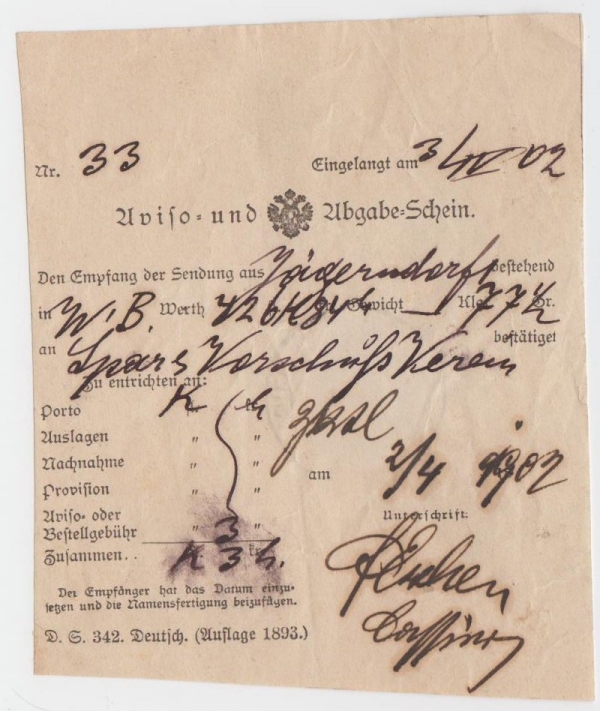 Nr. 33 Eingelangt am 3/IV 02
Aviso- und Abgabe-Schein.
Den Empfang der Sendung aus Jägerndorf bestehend
in W. B. Werth Gewicht Klg. Gr.
bestätiget
an Spar & Vorschuß Verein
Zu entrichten an:
Porto K h
Auslagen " "
Nachnahme " "
Provision " "
am 2/4 1902
Aviso- oder
Bestellgebühr " 3 "
Unterschrift:
Zusammen . . K 3 h.
Der Empfänger hat das Datum einzu-
setzen und die Namensfertigung beizufügen.
D. S. 342. Deutsch. (Auflage 1893.)